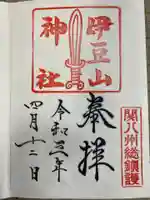 伊豆山
神社
奉拝
関八州総鎮護
令和三年
四月十二日